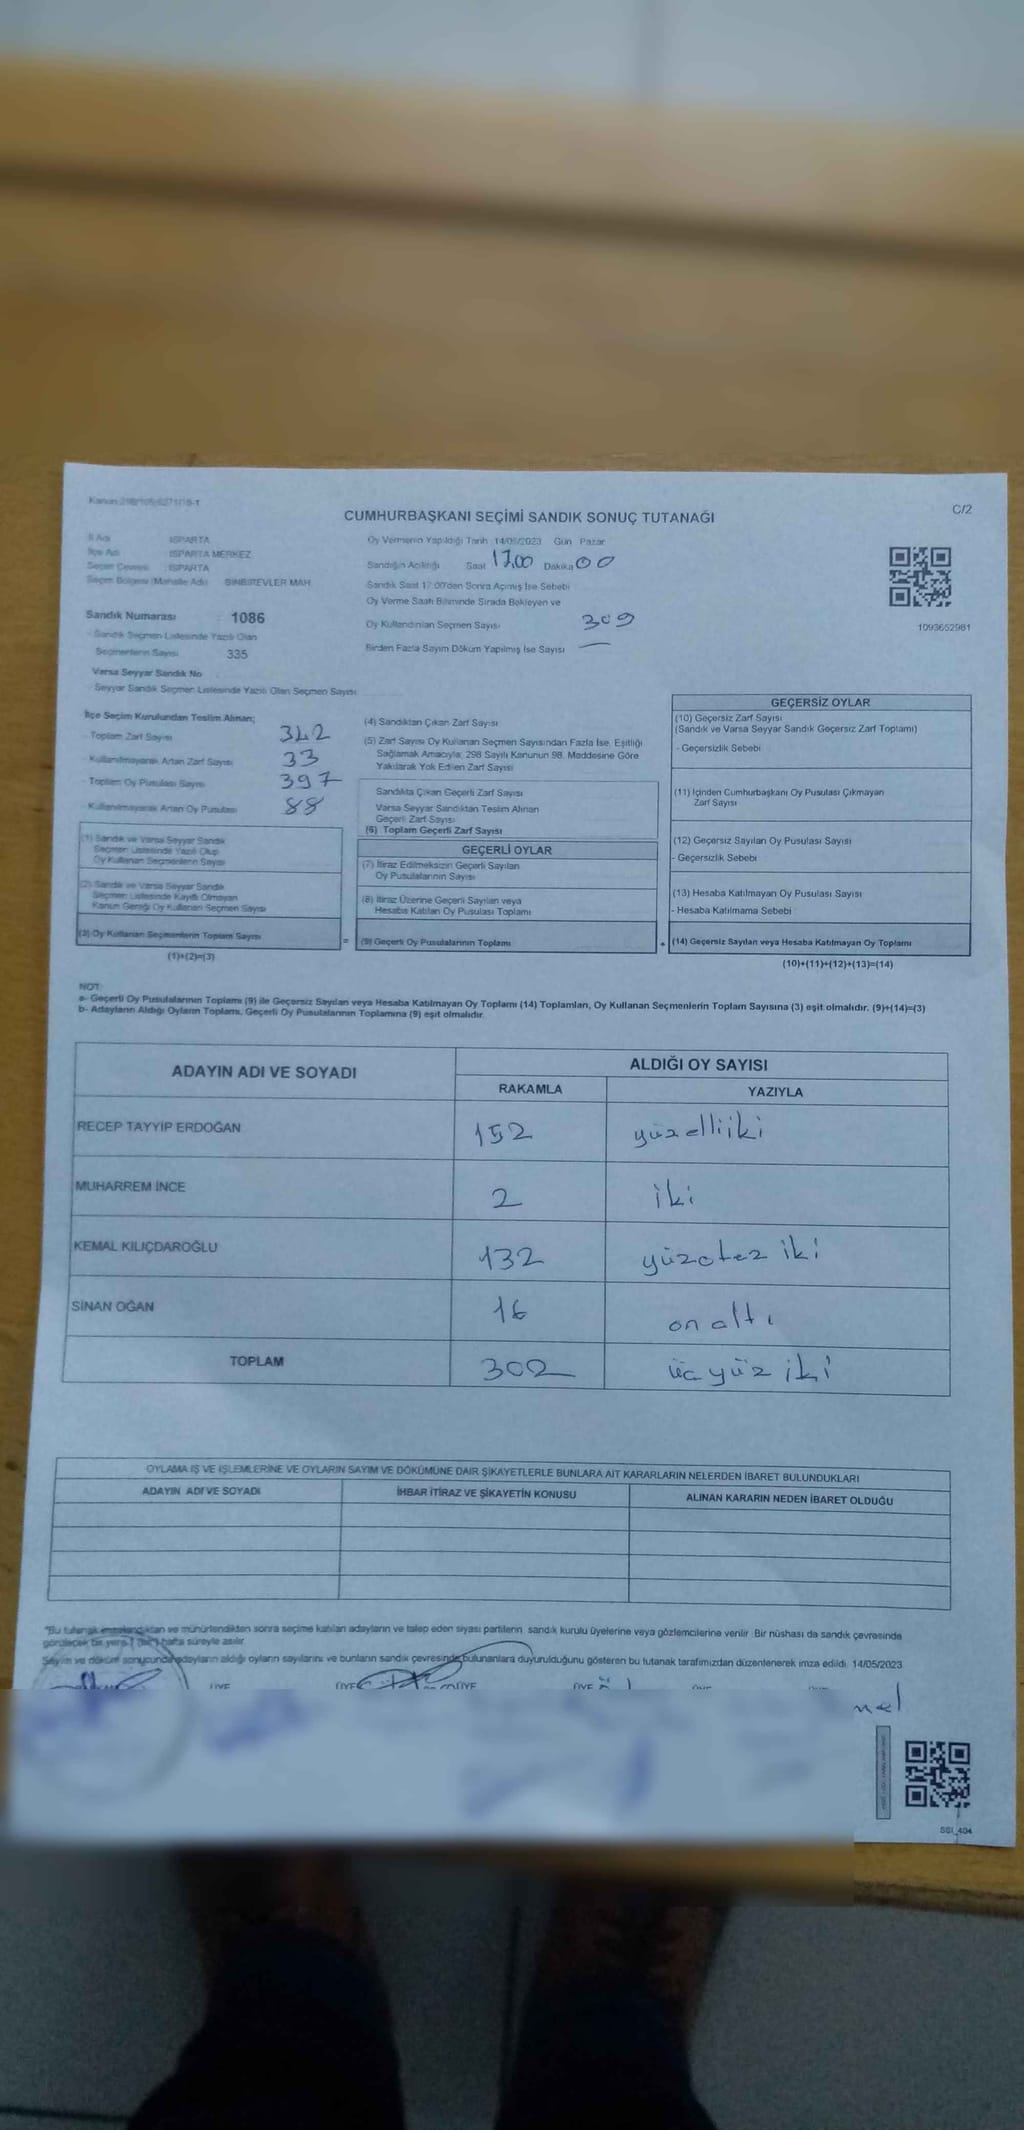 C/2
CUMHURBAŞKANI SEÇİMİ SANDIK SONUÇ TUTANAĞI
İl Adı : ISPARTA
İlçe Adı : ISPARTA MERKEZ
Seçim Çevresi : ISPARTA
Seçim Bölgesi (Mahalle Adı) : BİNBİREVLER MAH.
Oy Vermenin Yapıldığı Tarih 14/05/2023 Gün Pazar
Sandığın Açıldığı Saat 17,00 Dakika 00
Sandık Saat 17:00'den Sonra Açılmış İse Sebebi
Oy Verme Saati Bitiminde Sırada Bekleyen ve
Oy Kullandırılan Seçmen Sayısı 309
Birden Fazla Sayım Döküm Yapılmış İse Sayısı —
1093652981
Sandık Numarası : 1086
- Sandık Seçmen Listesinde Yazılı Olan
Seçmenlerin Sayısı 335
Varsa Seyyar Sandık No
- Seyyar Sandık Seçmen Listesinde Yazılı Olan Seçmen Sayısı
İlçe Seçim Kurulundan Teslim Alınan;
- Toplam Zarf Sayısı 342
- Kullanılmayarak Artan Zarf Sayısı 33
- Toplam Oy Pusulası Sayısı 397
- Kullanılmayarak Artan Oy Pusulası 88
(1) Sandık ve Varsa Seyyar Sandık
Seçmen Listesinde Yazılı Olup
Oy Kullanan Seçmenlerin Sayısı
(2) Sandık ve Varsa Seyyar Sandık
Seçmen Listesinde Kayıtlı Olmayan
Kanun Gereği Oy Kullanan Seçmen Sayısı
(3) Oy Kullanan Seçmenlerin Toplam Sayısı
(1)+(2)=(3)
(4) Sandıktan Çıkan Zarf Sayısı
(5) Zarf Sayısı Oy Kullanan Seçmen Sayısından Fazla İse, Eşitliği
Sağlamak Amacıyla, 298 Sayılı Kanunun 98. Maddesine Göre
Yakılarak Yok Edilen Zarf Sayısı
Sandıkta Çıkan Geçerli Zarf Sayısı
Varsa Seyyar Sandıktan Teslim Alınan
Geçerli Zarf Sayısı
(6) Toplam Geçerli Zarf Sayısı
GEÇERLİ OYLAR
(7) İtiraz Edilmeksizin Geçerli Sayılan
Oy Pusulalarının Sayısı
(8) İtiraz Üzerine Geçerli Sayılan veya
Hesaba Katılan Oy Pusulası Toplamı
= (9) Geçerli Oy Pusulalarının Toplamı
GEÇERSİZ OYLAR
(10) Geçersiz Zarf Sayısı
(Sandık ve Varsa Seyyar Sandık Geçersiz Zarf Toplamı)
- Geçersizlik Sebebi
(11) İçinden Cumhurbaşkanı Oy Pusulası Çıkmayan
Zarf Sayısı
(12) Geçersiz Sayılan Oy Pusulası Sayısı
- Geçersizlik Sebebi
(13) Hesaba Katılmayan Oy Pusulası Sayısı
- Hesaba Katılmama Sebebi
+ (14) Geçersiz Sayılan veya Hesaba Katılmayan Oy Toplamı
(10)+(11)+(12)+(13)=(14)
NOT:
a- Geçerli Oy Pusulalarının Toplamı (9) ile Geçersiz Sayılan veya Hesaba Katılmayan Oy Toplamı (14) Toplamları, Oy Kullanan Seçmenlerin Toplam Sayısına (3) eşit olmalıdır. (9)+(14)=(3)
b- Adayların Aldığı Oyların Toplamı, Geçerli Oy Pusulalarının Toplamına (9) eşit olmalıdır.
ADAYIN ADI VE SOYADI
ALDIĞI OY SAYISI
RAKAMLA YAZIYLA
RECEP TAYYİP ERDOĞAN 152 yüzelliiki
MUHARREM İNCE 2 iki
KEMAL KILIÇDAROĞLU 132 yüzotuz iki
SİNAN OĞAN 16 on altı
TOPLAM 302 üçyüz iki
OYLAMA İŞ VE İŞLEMLERİNE VE OYLARIN SAYIM VE DÖKÜMÜNE DAİR ŞİKAYETLERLE BUNLARA AİT KARARLARIN NELERDEN İBARET BULUNDUKLARI
ADAYIN ADI VE SOYADI İHBAR İTİRAZ VE ŞİKAYETİN KONUSU ALINAN KARARIN NEDEN İBARET OLDUĞU
"Bu tutanak imzalandıktan ve mühürlendikten sonra seçime katılan adayların ve talep eden siyasi partilerin sandık kurulu üyelerine veya gözlemcilerine verilir. Bir nüshası da sandık çevresinde
görülecek bir yere 1 (bir) hafta süreyle asılır.
Sayım ve döküm sonucunda adayların aldığı oyların sayılarını ve bunların sandık çevresinde bulunanlara duyurulduğunu gösteren bu tutanak tarafımızdan düzenlenerek imza edildi. 14/05/2023
ÜYE